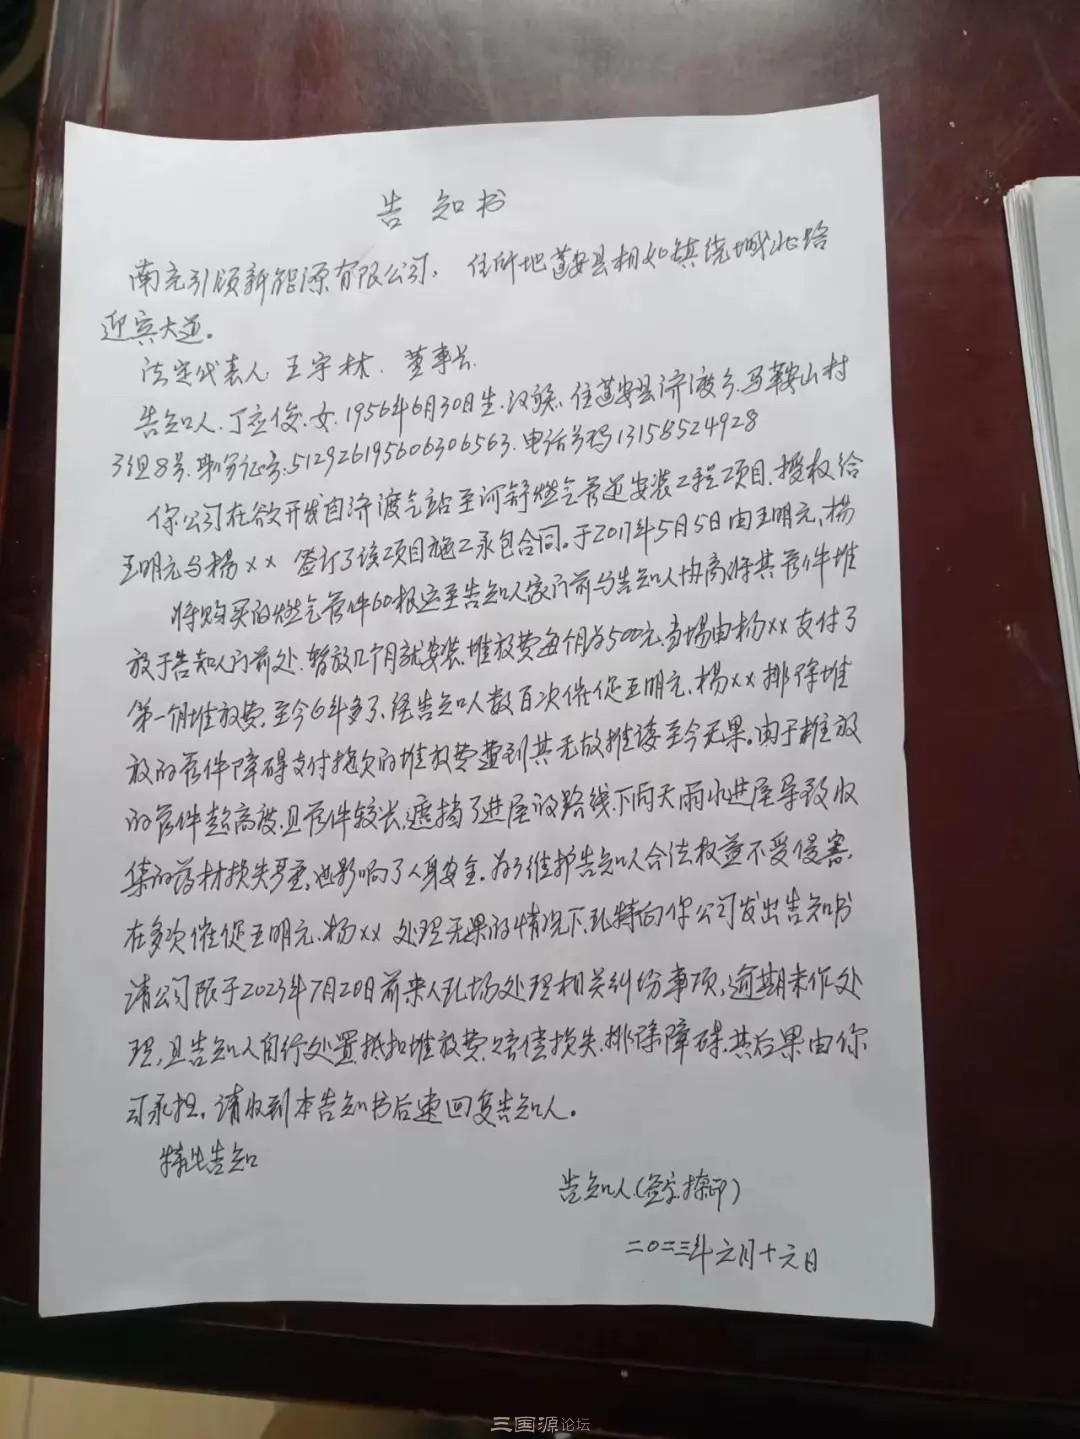 告知书
南充引颂新能源有限公司，住所地蓬安县相如镇绕城北路
迎宾大道。
法定代表人王宇林、董事长
告知人、丁应俊、女、1956年6月30日生、汉族、住蓬安县济渡乡马鞍山村
3组8号、身份证号：512926195606306563、电话号码13158524928
你公司在欲开发自济渡气站至河舒燃气管道安装工程工项目、授权给
王明元与杨×× 签订了该工项目施工承包合同。于2017年5月5日由王明元、杨
将购买的燃气管件60根运至告知人家门前与告知人协商将其管件堆
放于告知人门前处、暂放几个月就安装、堆放费每个月为500元、当场由杨××支付了
第一个月堆放费、至今6年多了、经告知人数百次催促王明元、杨××排除堆
放的管件障碍支付拖欠的堆放费遭到其无故推诿至今无果。由于堆放
的管件 高度、且管件较长、遮挡了进屋的路线、下雨天雨水进屋导致收
集的药材损失严重、也影响了人身安全。为了维护告知人合法权益不受侵害、
在多次催促王明元、杨××处理无果的情况下、现特向你公司发出告知书
请公司限于2023年7月20日前来人现场处理相关纠纷事项、逾期未作处
理、且告知人自行处置抵扣堆放费、赔偿损失、排除障碍、其后果由你
司承担。请收到本告知书后速回复告知人。
特此告知
告知人（签字捺印）
二〇二三年六月十六日
三国源论坛